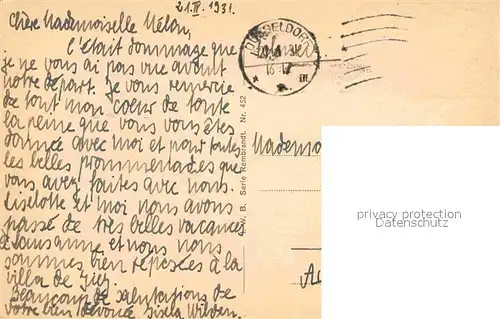 21.IV.1931.
Chère Mademoiselle Mélan,
C'était dommage que
je ne vous ai pas vue avant
notre départ. Je vous remercie
de tout mon coeur de toute
la peine que vous vous êtes
donnée avec moi et pour toutes
les belles prommenades que
vous avez faites avec nous.
Liselotte et moi nous avons
passé de très belles vacances
à Lausanne et nous nous
sommes bien reposées à la
villa de
Beaucoup de salutations de
votre bien dévouée Gisela Wilden.
W. B. Serie Rembrandt. Nr. 452
DÜSSELDORF
Mademo
privacy protection
Datenschutz